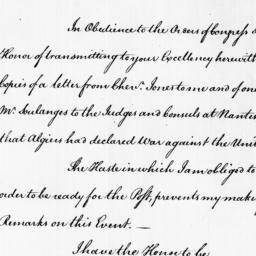 In Obedience to the Orders of Congress
Honor of transmitting to your Excellency herewith
Copies of a letter from Chevr. Jones to me and of one
Mr. Soulanges to the Judges and Consuls at Nantis
that Algiers had declared War against the Unit
The Haste in which I am obliged to
order to be ready for the Post, prevents my mak
Remarks on this Event. —
I have the Honor to be